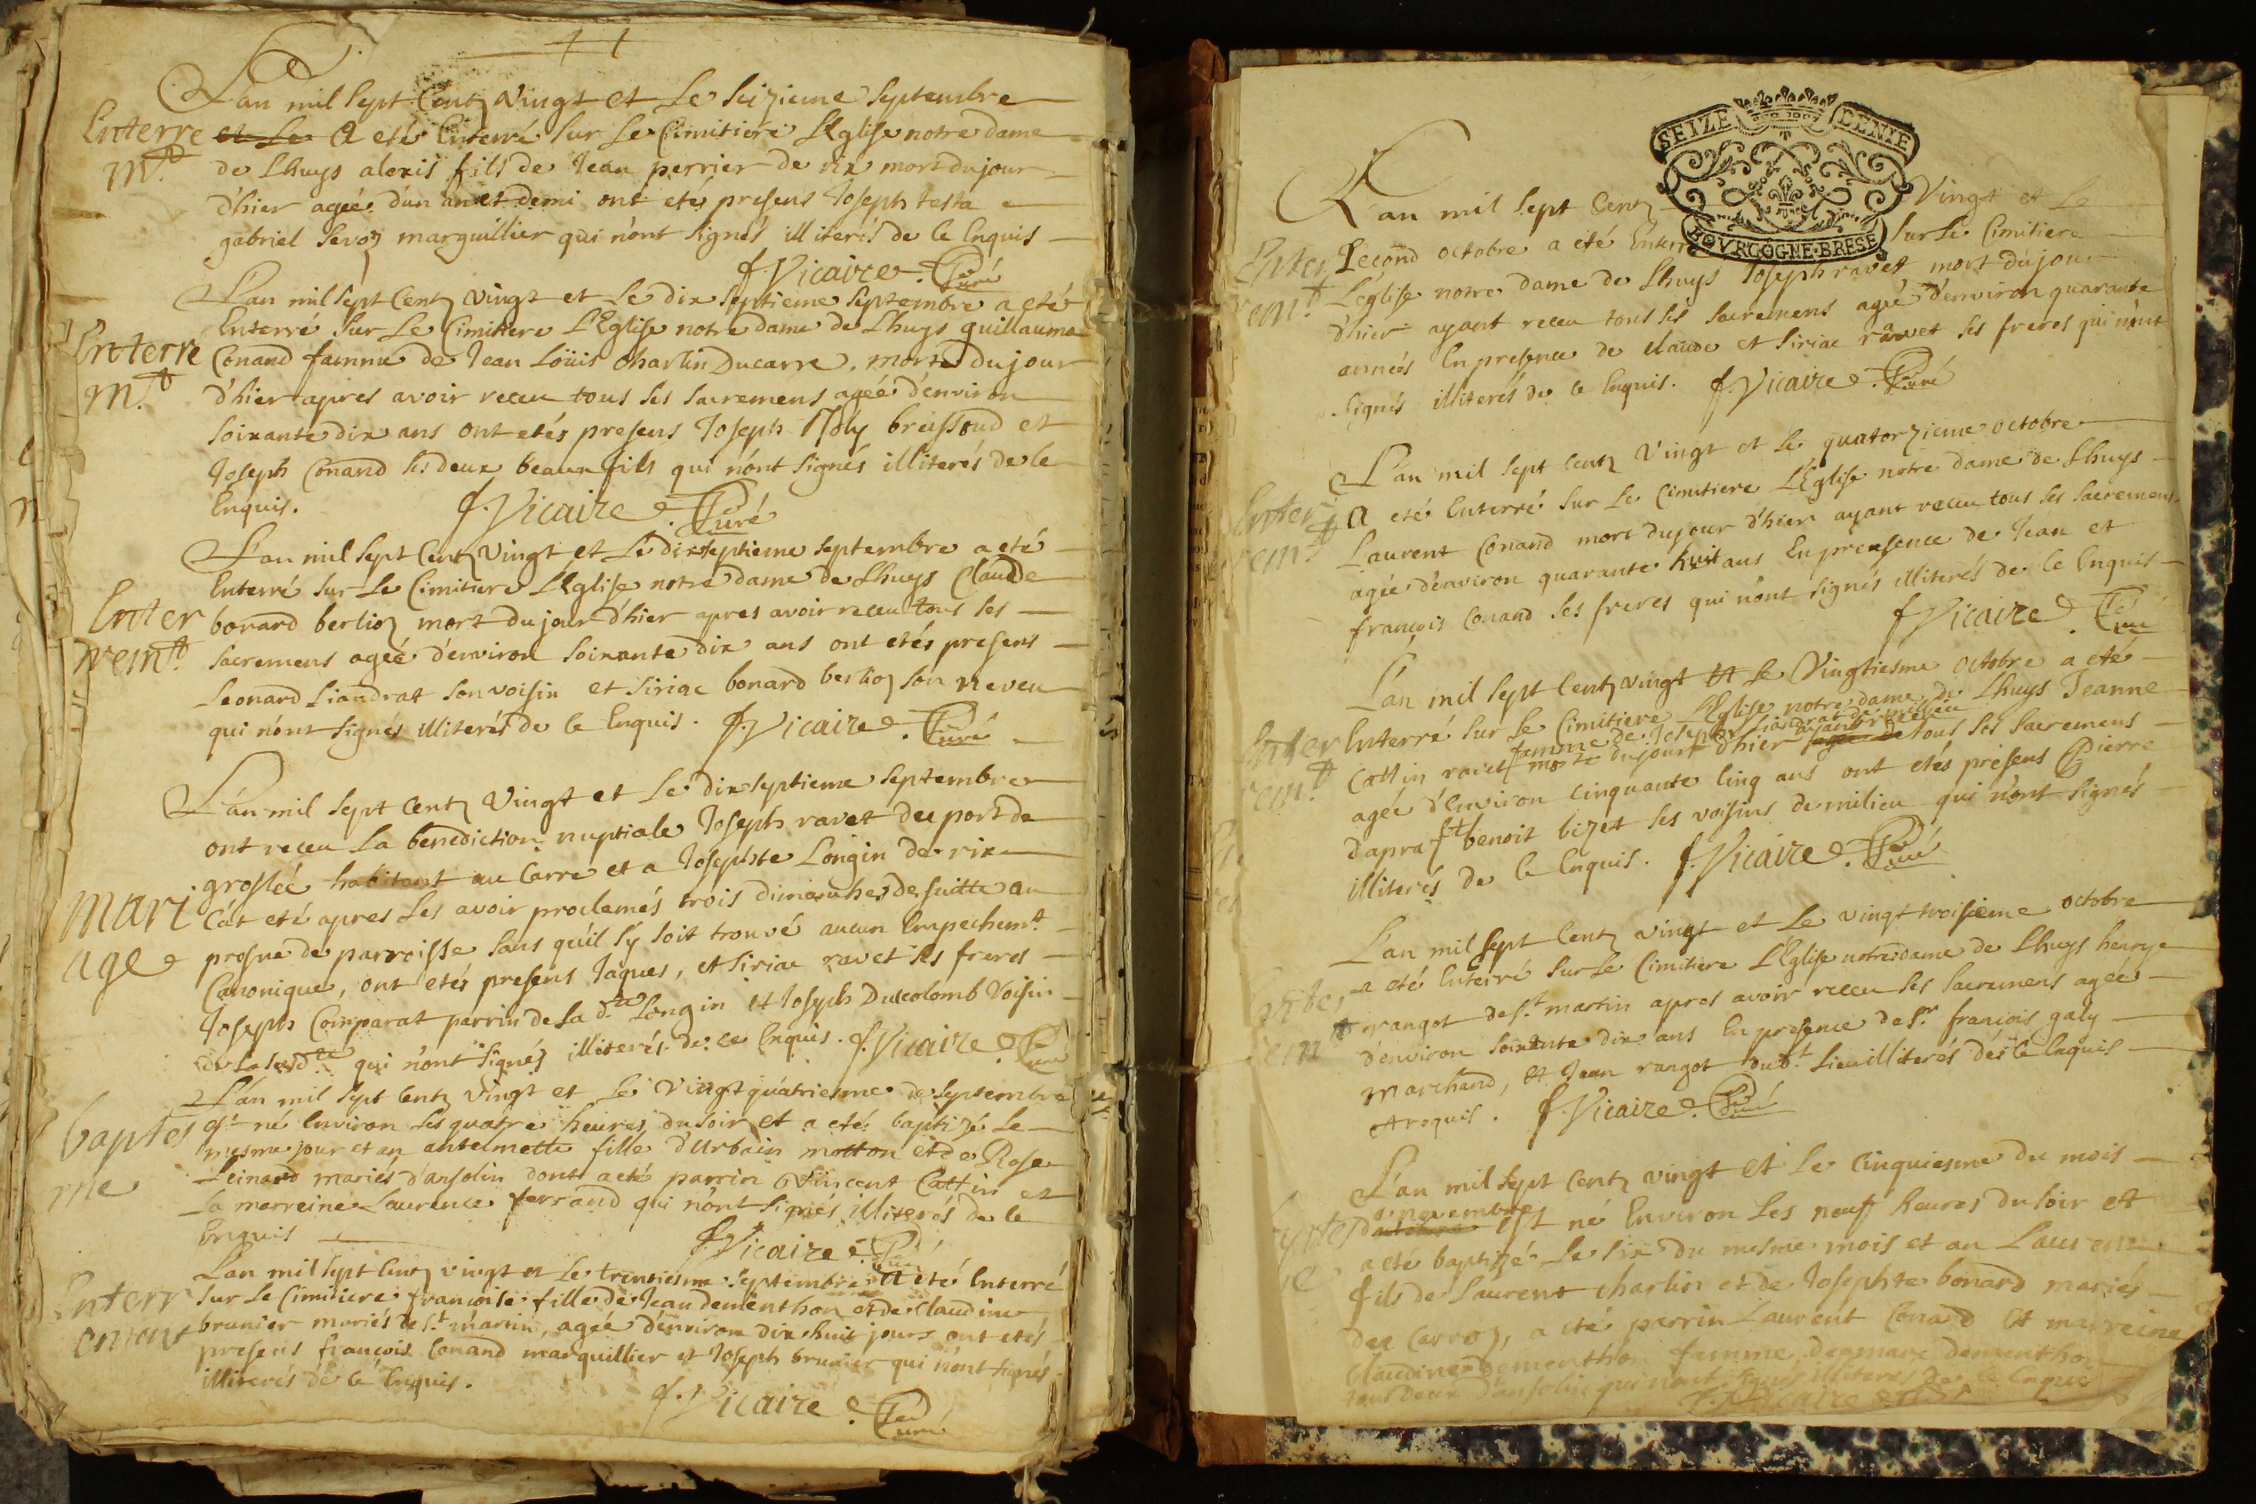 L'an mil sept Centz Vingt et Le seizieme septembre
Enterre et Le A eté Enterré sur Le Cimitiere L'Eglise notre dame
mt de Lhuys alexis fils de Jean perrier de rix mort du jour
d'hier ageé d'un an et demi ont etés presens Joseph testa
gabriel sevoz marguillier qui n'ont signés illiterés de ce Enquis
f. Vicaire Curé
L'an mil sept Centz vingt et Le dix septieme septembre a eté
Enterré sur Le Cimitiere L'Eglise notre dame de Lhuys guillauma
Enterre Conand famme de Jean Loüis Charlin Ducarre, morte du jour
mt d'hier apres avoir receu tous ses sacremens ageé d'environ
soixante dix ans ont etés presens Joseph brissoud et
Joseph Conand ses deux beaux fils qui n'ont signés illiterés de ce
Enquis. f. Vicaire Curé
L'an mil sept Centz vingt et Le dix septieme septembre a eté
Enterré sur Le Cimitiere L'Eglise notre dame de Lhuys Claude
Enter bonard berlioz mort du jour d'hier apres avoir receu tous ses
remt sacremens ageé d'environ soixante dix ans ont etés presens
Leonard Liandrat son voisin et siriac bonard berlioz son neveu
qui n'ont signés illiterés de ce Enquis. f. Vicaire Curé
L'an mil sept Centz Vingt et Le dix septieme septembre
ont receu La benediction nuptiale Joseph ravet du port de
groslée habitant au Carre et a Josephte Longin de rix
Mari C'at eté apres Les avoir proclamés trois dimanches de suitte au
age prosne de parroisse sans qu'il s'y soit trouvé aucun Empechemt
Canonique, ont etés presens Jaques, et siriac ravet ses freres
Joseph Comparat parrin de La dte Longin et Joseph Ducolomb Voisin
de La susdte qui n'ont signéz illiterés de ce Enquis. f. Vicaire Curé
L'an mil sept Centz vingt et Le Vingt quatriesme de septembre
baptes est né Environ Les quatre heures du soir et a eté baptizé Le
me mesme jour et an antelmette fille d'Urbain motton et de Rose
Leinard mariés d'ansolin dont a eté parrin Vincent Cattin et
La marreine Laurence ferrand qui n'ont signés illiterés de ce
Enquis f. Vicaire Curé
L'an mil sept Centz vingt et Le trentiesme septembre A eté Enterré
Enterr sur Le Cimitiere francoise fille de Jean dementhon et de Claudine
ement brunier mariés de st martin, ageé d'environ dix huit jours ont etés
presens francois Conand marguillier et Joseph brunier qui n'ont signés
illiterés de ce Enquis.
f. Vicaire Curé
SEIZE DENIE
BOVRGOGNE·BRESE
L'an mil sept Centz Vingt et Le
Enter second octobre a eté Enterré sur Le Cimitiere
remt L'eglise notre dame de Lhuys Joseph ravet mort du jour
d'hier ayant receu tous ses sacremens ageé d'environ quarante
années En presence de claude et siriac ravet ses freres qui n'ont
signés illiterés de ce Enquis. f. Vicaire Curé
L'an mil sept Centz Vingt et Le quatorzieme octobre
Enter A eté Enterré sur Le Cimitiere L'Eglise notre dame de Lhuys
remt Laurent Conand mort du jour d'hier ayant receu tous ses sacremens
agée d'environ quarante huit ans En presence de Jean et
francois Conand ses freres qui n'ont signés illiterés de ce Enquis
f Vicaire Curé
L'an mil sept Centz vingt et Le Vingtiesme octobre a eté
Enter Enterré sur Le Cimitiere L'Eglise notre dame de Lhuys Jeanne
famme de Joseph Liandrat de millieu
remt Cattin ravet morte du jour d'hier ayant receu tous ses sacremens
agée d'Environ cinquante Cinq ans ont etés presens Pierre
dapra et benoit bizet ses voisins de milieu qui n'ont signés
illiterés de ce Enquis. f. Vicaire Curé
L'an mil sept Centz vingt et Le vingt troisieme octobre
Enter a eté Enterré sur Le Cimitiere L'Eglise notre dame de Lhuys henrye
rangot de st martin apres avoir receu ses sacremens ageé
emt d'environ soixante dix ans En presence de sr francois galy
marchand, et Jean rangot dudt Lieu illiterés de ce Enquis
et requis. f. Vicaire Curé
L'an mil sept Centz vingt et Le Cinquiesme du mois
de novembre est né Environ Les neuf heures du soir et
a eté baptizé Le six du mesme mois et an Laurent
fils de Laurent charlin et de Josephte bonard mariés
des Carroz, a eté parrin Laurent Conard et marreine
Claudine dementhon famme de marc dementhon
tous deux d'ansolin qui n'ont signés illiterés de ce Enquis
f. Vicaire